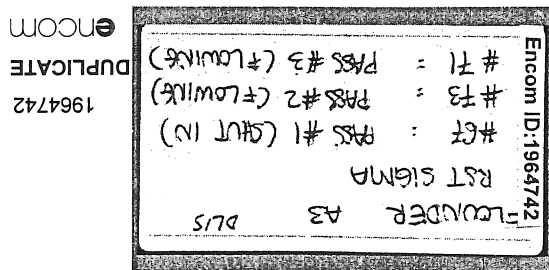 FLOUNDER A3 DLIS
RST SIGMA
#67 : PASS #1 (SHUT IN)
#73 : PASS #2 (FLOWING)
#71 : PASS #3 (FLOWING)
Encom ID:1964742
1964742
DUPLICATE
encom